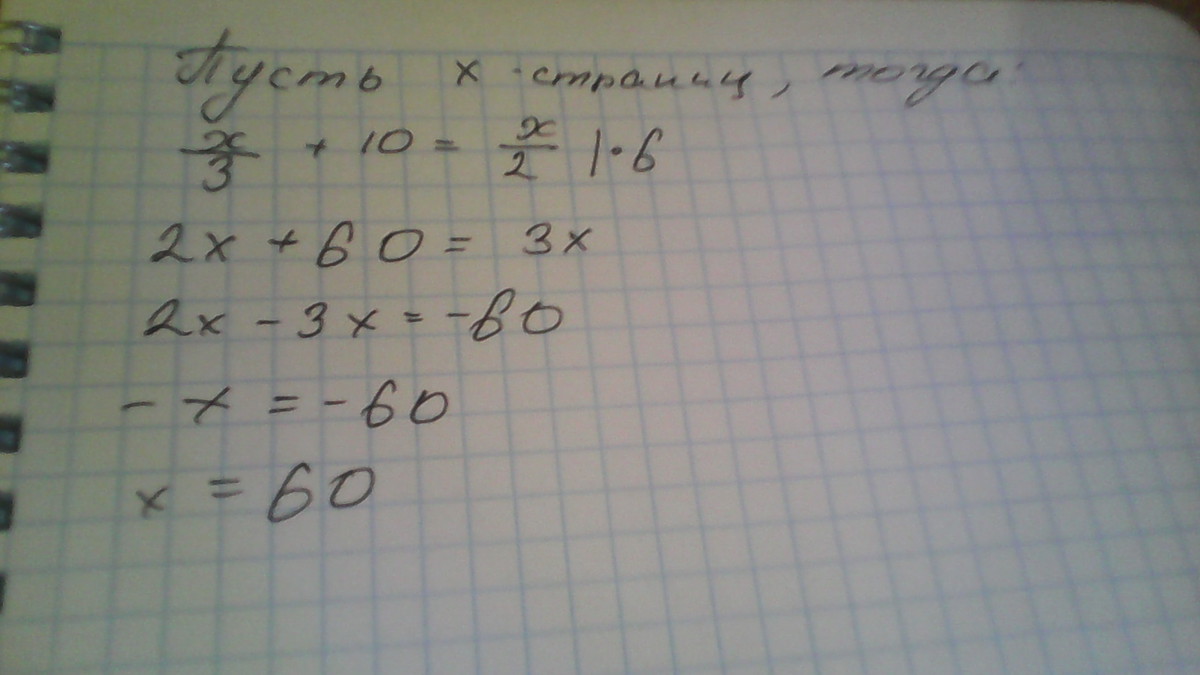 Пусть x страниц, тогда:
x/3 + 10 = x/2 |·6
2x + 60 = 3x
2x - 3x = -60
- x = -60
x = 60